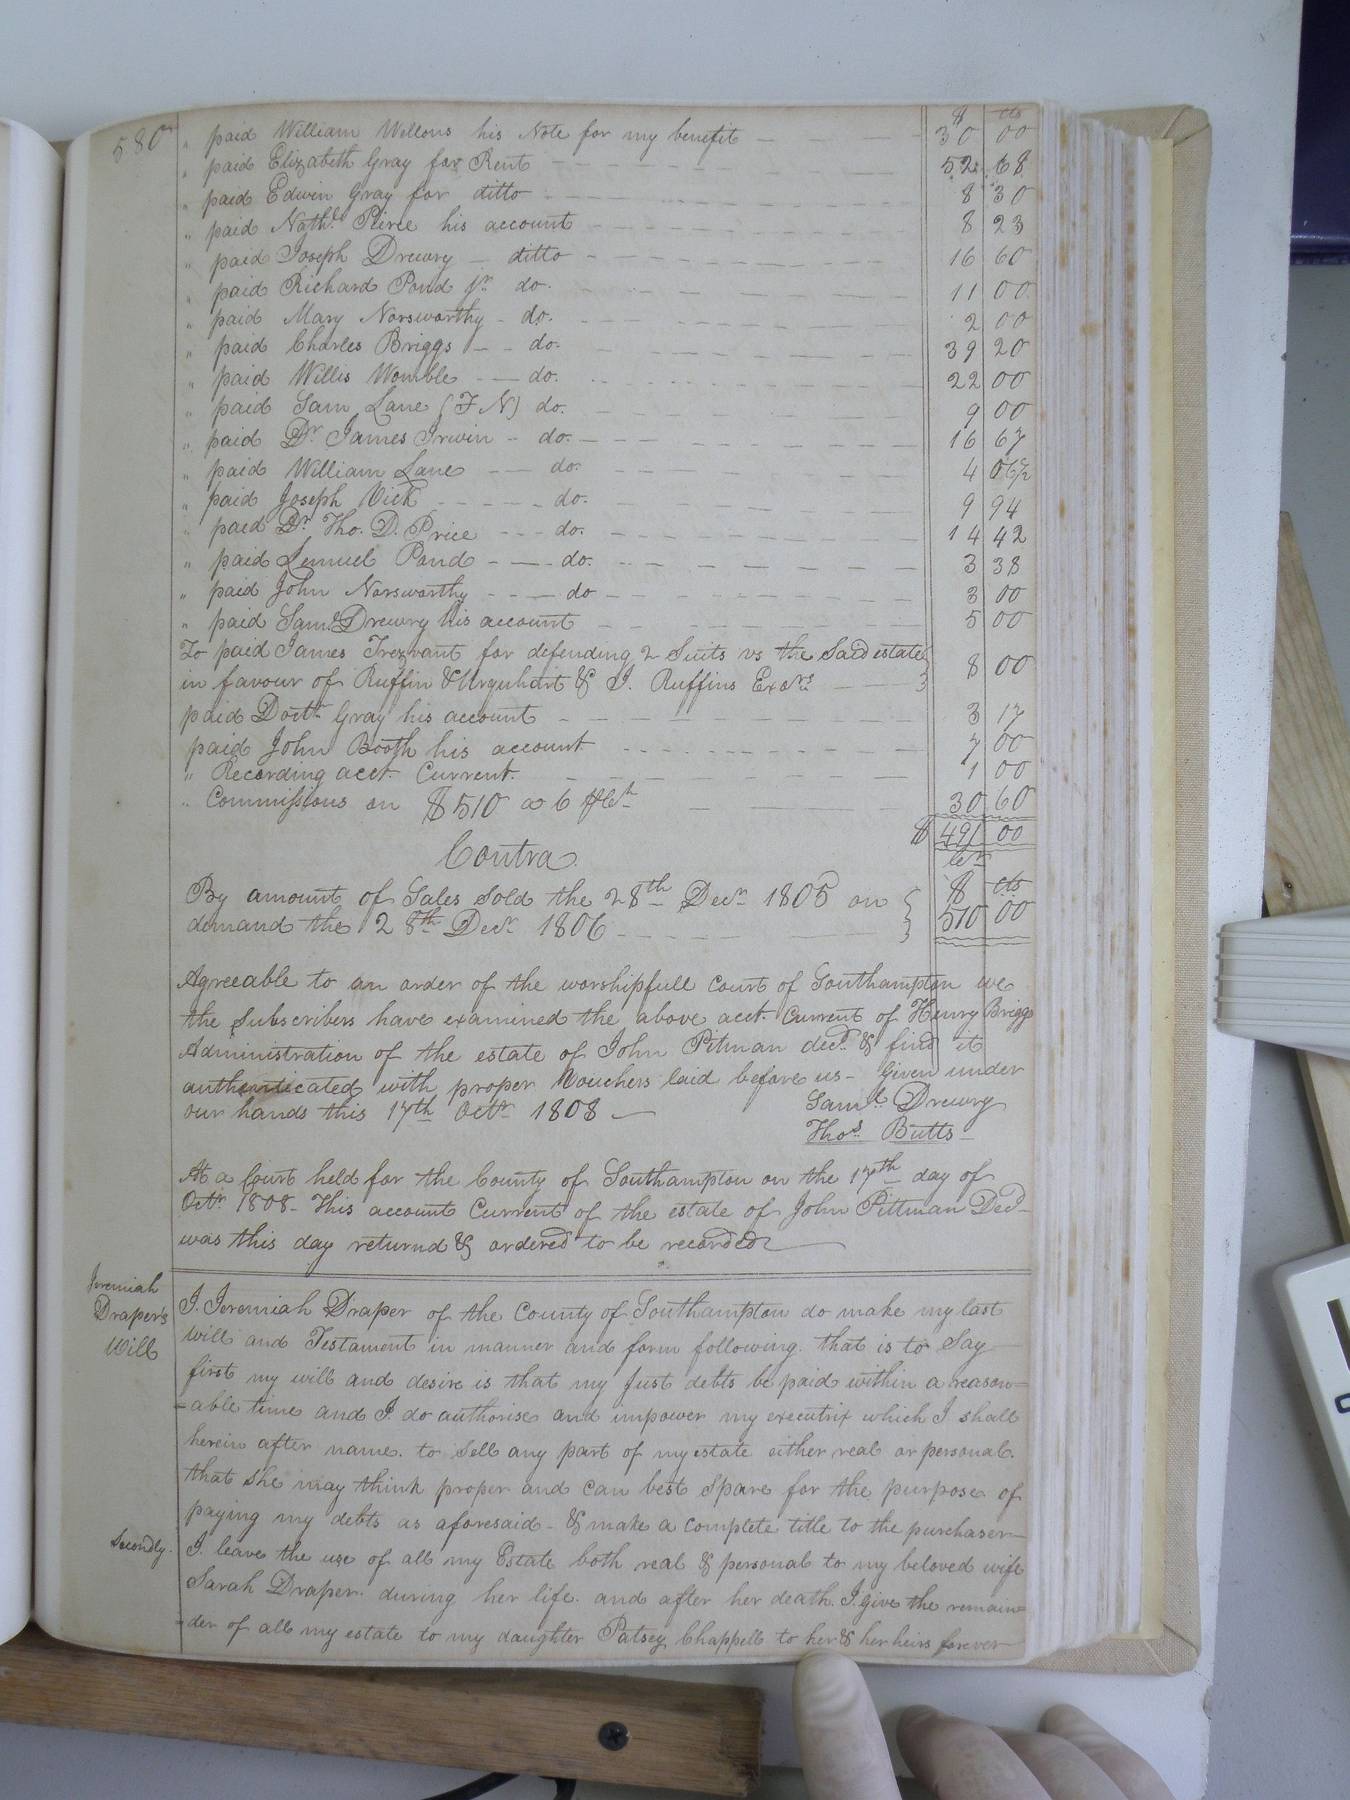 580
$ cts
" paid William Wellons his Note for my benefit 30 00
" paid Elizabeth Gray for Rent 52 68
" paid Edwin Gray for ditto 8 30
" paid Nathl. Peirce his account 8 23
" paid Joseph Drewry ditto 16 60
" paid Richard Pond jr. do. 11 00
" paid Mary Norsworthy do. 2 00
" paid Charles Briggs do. 39 20
" paid Willis Womble do. 22 00
" paid Sam Lane (F N) do. 9 00
" paid Dr. James Irwin do. 16 67
" paid William Lane do. 4 06 1/2
" paid Joseph Vick do. 9 94
" paid Dr. Tho. D. Price do. 14 42
" paid Lemuel Pond do. 3 38
" paid John Norsworthy do 3 00
" paid Saml. Drewry his account 5 00
To paid James Trezvant for defending 2 Suits vs the Said estate
in favour of Ruffin & Urquhart & J. Ruffins Exors. 8 00
paid Doctr. Gray his account 3 17
paid John Booth his account 7 00
" Recording acct. Current 1 00
" Commissions on $510 a 6 pCt. 30 60
$ 491 00
Contra Cr.
$ cts
By amount of Sales Sold the 28th Decr. 1805 on
demand the 28th Decr. 1806 510 00
Agreeable to an order of the worshipfull Court of Southampton we
the Subscribers have examined the above acct. Current of Henry Briggs
Administration of the estate of John Pitman decd. & find it
authenticated with proper Vouchers laid before us - Given under
our hands this 17th Octr. 1808
Saml. Drewry
Thos. Butts
At a Court held for the County of Southampton on the 17th day of
Octr. 1808 - This account Current of the estate of John Pittman Decd
was this day returnd & ordered to be recorded
Jeremiah
Draper's
Will
I. Jeremiah Draper of the County of Southampton do make my last
will and Testament in manner and form following. that is to Say
first my will and desire is that my Just debts be paid within a reason=
=able time and I do authorise and impower my executrix which I shall
herein after name. to Sell any part of my estate either real or personal.
that she may think proper and can best Spare for the purpose of
paying my debts as aforesaid - & make a complete title to the purchaser
Secondly.
I. leave the use of all my Estate both real & personal to my beloved wife
Sarah Draper. during her life. and after her death. I give the remain=
=der of all my estate to my daughter Patsey Chappell to her & her heirs forever